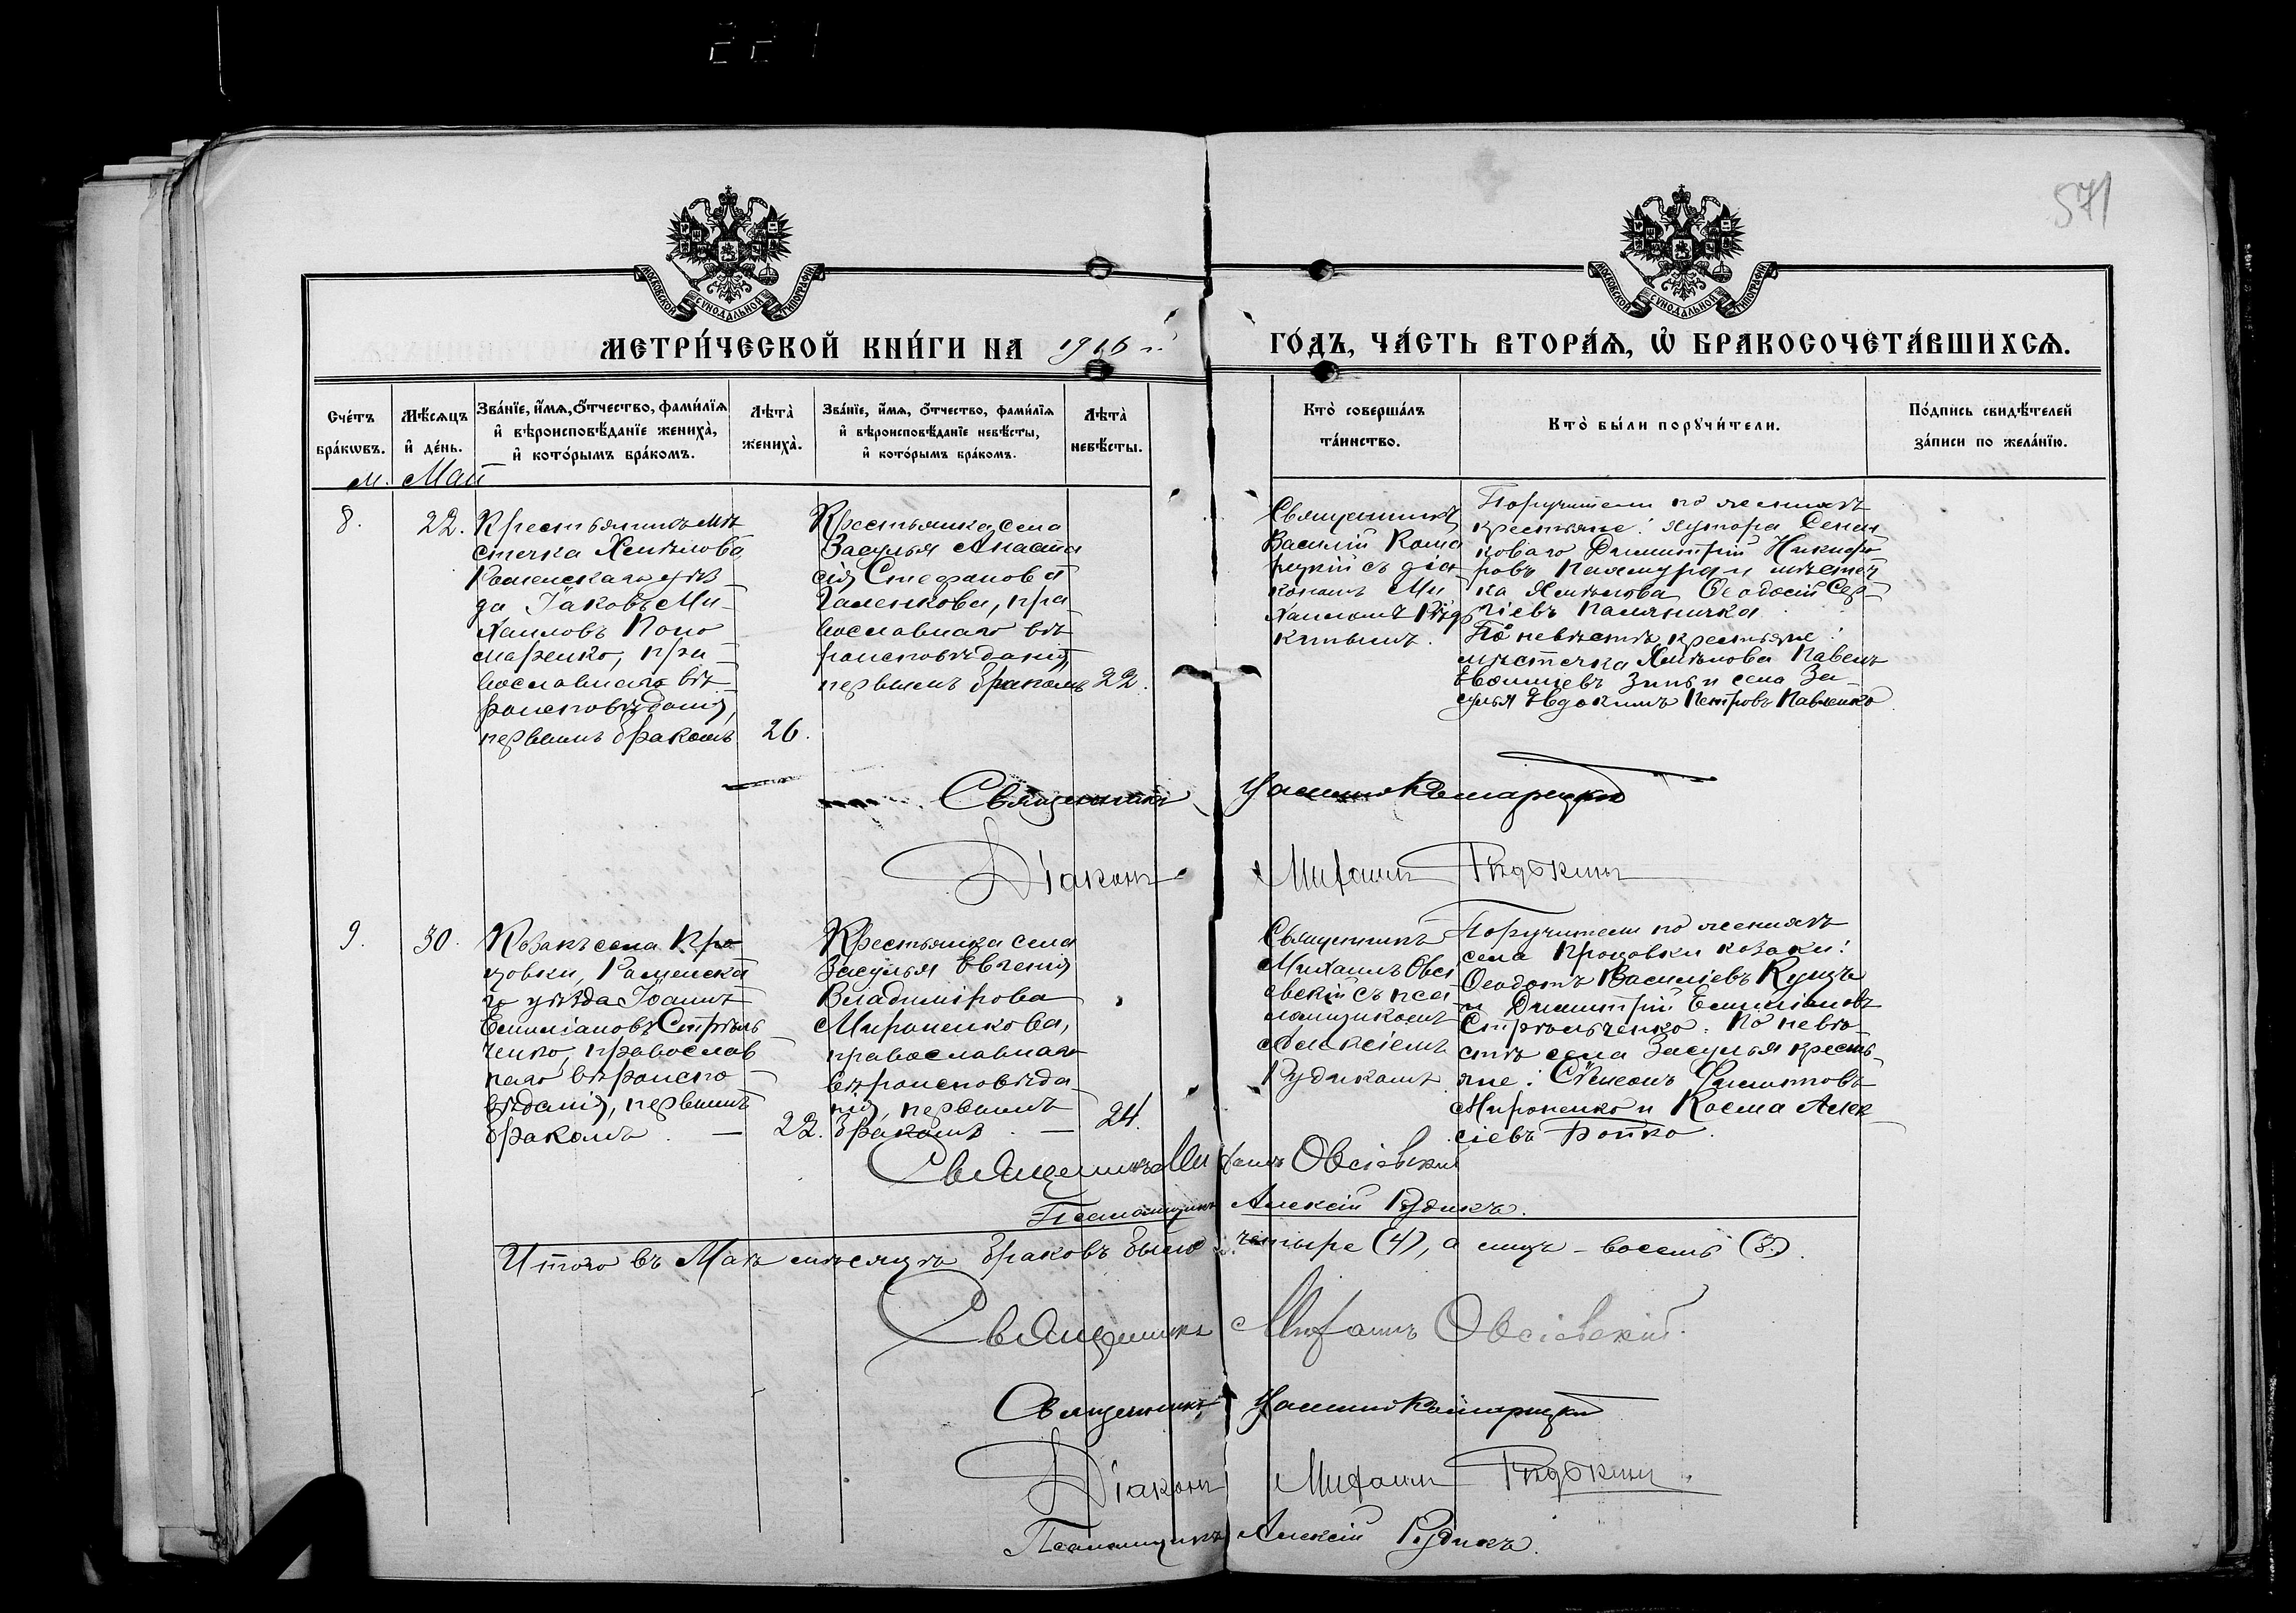 571
МОСКОВСКОЙ СѴНОДАЛЬНОЙ ТИПОГРАФІИ
МОСКОВСКОЙ СѴНОДАЛЬНОЙ ТИПОГРАФІИ
МЕТРИ́ЧЕСКОЙ КНИ́ГИ НА 1916 г.
ГО́ДЪ, ЧА́СТЬ ВТОРА́Ѧ, Ѡ҆ БРАКОСОЧЕТА́ВШИХСѦ.
Сче́тъ
бра́кѡвъ.
Мѣ́сѧцъ
и҆ де́нь.
Зва́нїе, и҆́мѧ, ѻ҆́тчество, фами́лїѧ
и҆ вѣроисповѣ́данїе жениха̀,
и҆ кото́рымъ бра́комъ.
Лѣта̀
жениха̀.
Зва́нїе, и҆́мѧ, ѻ҆́тчество, фами́лїѧ
и҆ вѣроисповѣ́данїе невѣ́сты,
и҆ кото́рымъ бра́комъ.
Лѣта̀
невѣ́сты.
Кто̀ соверша́лъ
та́инство.
Кто̀ бы́ли порꙋчи́тели.
По́дпись свидѣ́телей
за́писи по жела́нїю.
м. Май
8.
22.
Крестьянинъ мѣ
стечка Хмѣлова
Роменскаго уѣз
да Іаковъ Ми-
хаиловъ Поно
маренко, пра-
вославнаго вѣ-
роисповѣданія,
первымъ бракомъ
26.
Крестьянка села
Засулья Анаста
сія Стефанова
Галенкова, пра-
вославнаго вѣ
роисповѣданія
первымъ бракомъ
22.
Священникъ
Василій Кома
рецкій съ діа-
кономъ Ми
хаиломъ Рѣдь
кинымъ.
Поручители по женихѣ
крестьяне: хутора
Димитрій Никифо
ровъ и мѣстеч
ка Хмѣлова Ѳеодосій Сер-
гіевъ Паляничка.
По невѣстѣ крестьяне:
мѣстечка Хмѣлова Павелъ
и села За-
сулья Евдокимъ Петровъ Павленко.
Священникъ Василій Комарецкій
Діаконъ Михаилъ Рѣдькинъ
9.
30.
Козакъ села Про
цовки, Роменска
го уѣзда Іоаннъ
Емиліановъ Стрѣль
ченко, православ
наго вѣроиспо-
вѣданія, первымъ
бракомъ. —
22.
Крестьянка села
Засулья Евгенія
Владимірова
Мироненкова,
православнаго
вѣроисповѣда-
нія, первымъ
бракомъ. —
24.
Священникъ
Михаилъ Овсі
евскій съ пса-
ломщикомъ
Алексіемъ
Рудикомъ
Поручители по женихѣ
села Процовки козаки:
Ѳеодотъ Василіевъ Куцъ
и Димитрій Емиліановъ
Стрѣльченко. По невѣ-
стѣ села Засулья кресть-
яне: Сѵмеонъ Филиповъ
Мироненко и Косма Алек-
сіевъ Бойко.
Священникъ Михаилъ Овсіевскій
Псаломщикъ Алексій Рудикъ.
Итого въ Маѣ мѣсяцѣ браковъ было четыре (4), а лицъ – восемь (8).
Священникъ Михаилъ Овсіевскій.
Священникъ Василій Комарецкій
Діаконъ Михаилъ Рѣдькинъ.
Псаломщикъ Алексій Рудикъ.